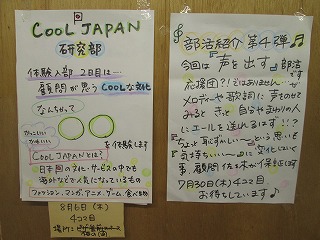 COOL JAPAN
研究部
体験入部 2日目は…
顧問が思う COOLな文化
なんちゃって
かっこいい
かわいい
を体験します
COOL JAPANとは?
日本国の文化・サービスの中でも
海外などで人気になっているもの
ファッション、マンガ、アニメ、ゲーム、食べ物
8月6日(木)
4コマ目
場所:
部活紹介 第4弾
今回は『声を出す』部活です
応援団?!ではありません…が
メロディーや歌詞に声をのせて
みると きっと 自分やまわりの人
にエールを送れるはず!!?
『ちょっと恥ずかしい〜』という思いも
『気持ちいい〜』に変化していく
事、顧問佐々木が保証します
7月30日(木)4コマ目
お待ちしています♪